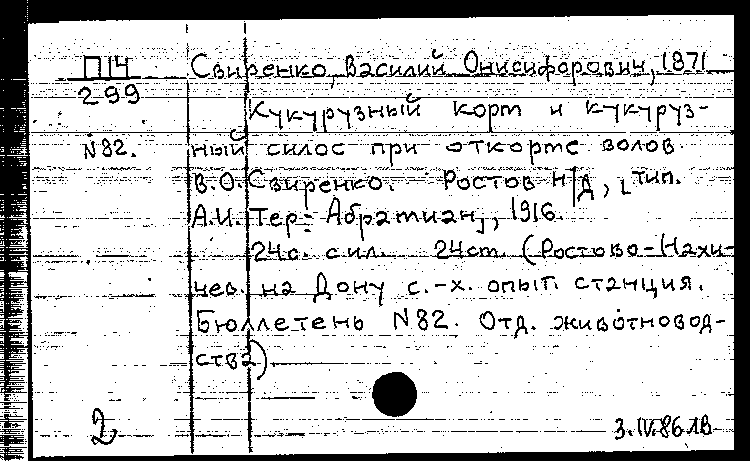 П14 Свиренко, Василий Онисифорович, 1871
299
Кукурузный корм и кукуруз-
№82. ный силос при откорме волов.
В.О. Свиренко. Ростов н/Д, [тип.
А.И. Тер-Абрамиан], 1916.
24с. с ил. 24см. (Ростово-Нахи-
чев. на Дону с.-х. опыт. станция.
Бюллетень №82. Отд. животновод-
ства)
2 3.IV.86 ЛВ